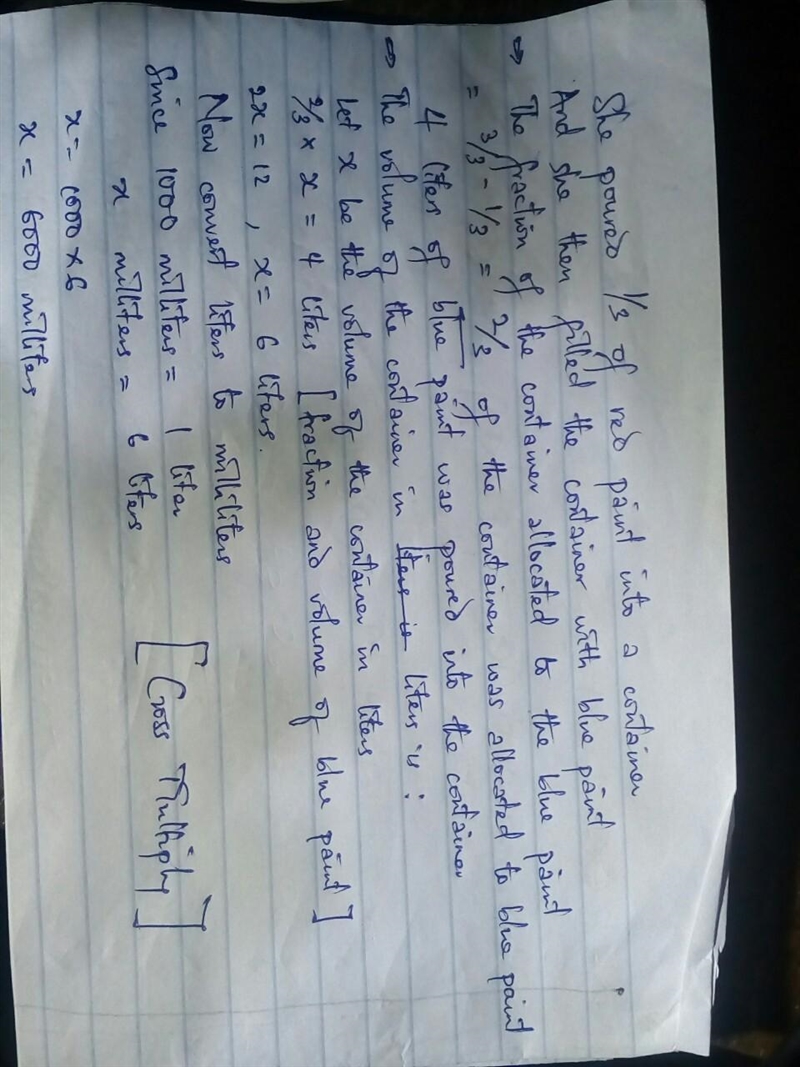 She poured 1/3 of red paint into a container
And she then filled the container with blue paint
⇒ The fraction of the container allocated to the blue paint
= 3/3 - 1/3 = 2/3 of the container was allocated to blue paint
4 liters of blue paint was poured into the container
⇒ The volume of the container in liters is liters is :
Let x be the volume of the container in liters
2/3 × x = 4 liters [fraction and volume of blue paint]
2x = 12 , x = 6 liters.
Now convert liters to milliliters
Since 1000 milliters = 1 liter
x milliters = 6 liters [Cross Multiply]
x = 1000 × 6
x = 6000 milliters